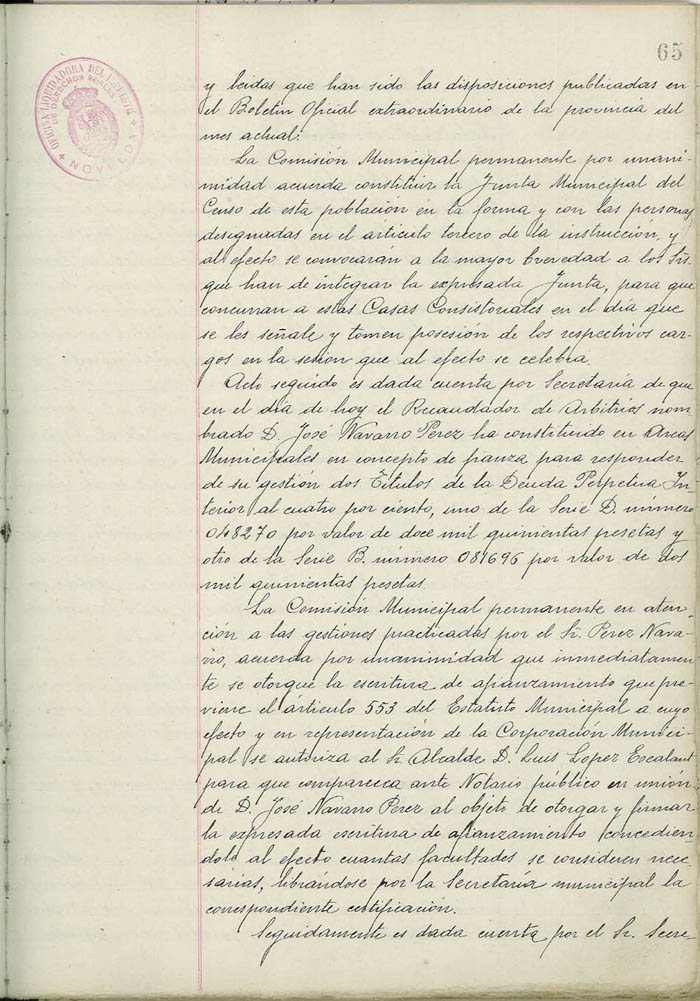 65
OFICINA LIQUIDADORA DEL IMPUESTO
DE DERECHOS REALES
NOVELDA
y leidas que han sido las disposiciones publicadas en
el Boletin Oficial extraordinario de la provincia del
mes actual:
La Comisión Municipal permanente por unani-
midad acuerda constituir la Junta Municipal del
Censo de esta población en la forma y con las personas
designadas en el artículo tercero de la instrucción, y
al efecto se convocarán a la mayor brevedad a los Srs.
que han de integrar la expresada Junta, para que
concurran a estas Casas Consistoriales en el día que
se les señale y tomen posesión de los respectivos car-
gos en la sesión que al efecto se celebra.
Acto seguido es dada cuenta por Secretaría de que
en el día de hoy el Recaudador de Arbitrios nom
brado D. José Navarro Perez ha constituido en Arcas
Municipales en concepto de fianza para responder
de su gestión dos Títulos de la Deuda Perpetua In-
terior al cuatro por ciento, uno de la Serie D. número
048270 por valor de doce mil quinientas pesetas y
otro de la Serie B. número 081696 por valor de dos
mil quinientas pesetas.
La Comisión Municipal permanente en aten-
ción a las gestiones practicadas por el Sr. Perez Nava-
rro, acuerda por unanimidad que inmediatamen
te se otorgue la escritura de afianzamiento que pre-
viene el artículo 553 del Estatuto Municipal a cuyo
efecto y en representación de la Corporación Munici-
pal se autoriza al Sr. Alcalde D. Luis Lopez Escalant
para que comparezca ante Notario público en unión
de D. José Navarro Perez al objeto de otorgar y firmar
la expresada escritura de afianzamiento concedien
dole al efecto cuantas facultades se consideren nece-
sarias, librándose por la Secretaría municipal la
correspondiente certificación.
Seguidamente es dada cuenta por el Sr. Secre-